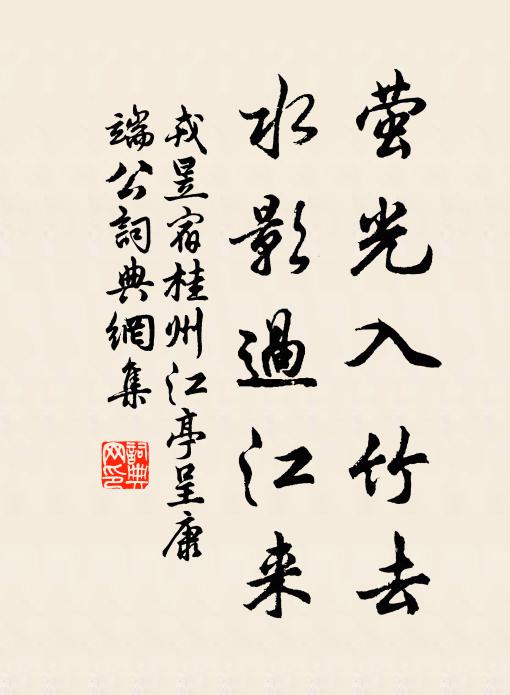 萤光入竹去
水影過江来
戎昱宿桂州江亭呈康
端公詞典網集
詞典网印